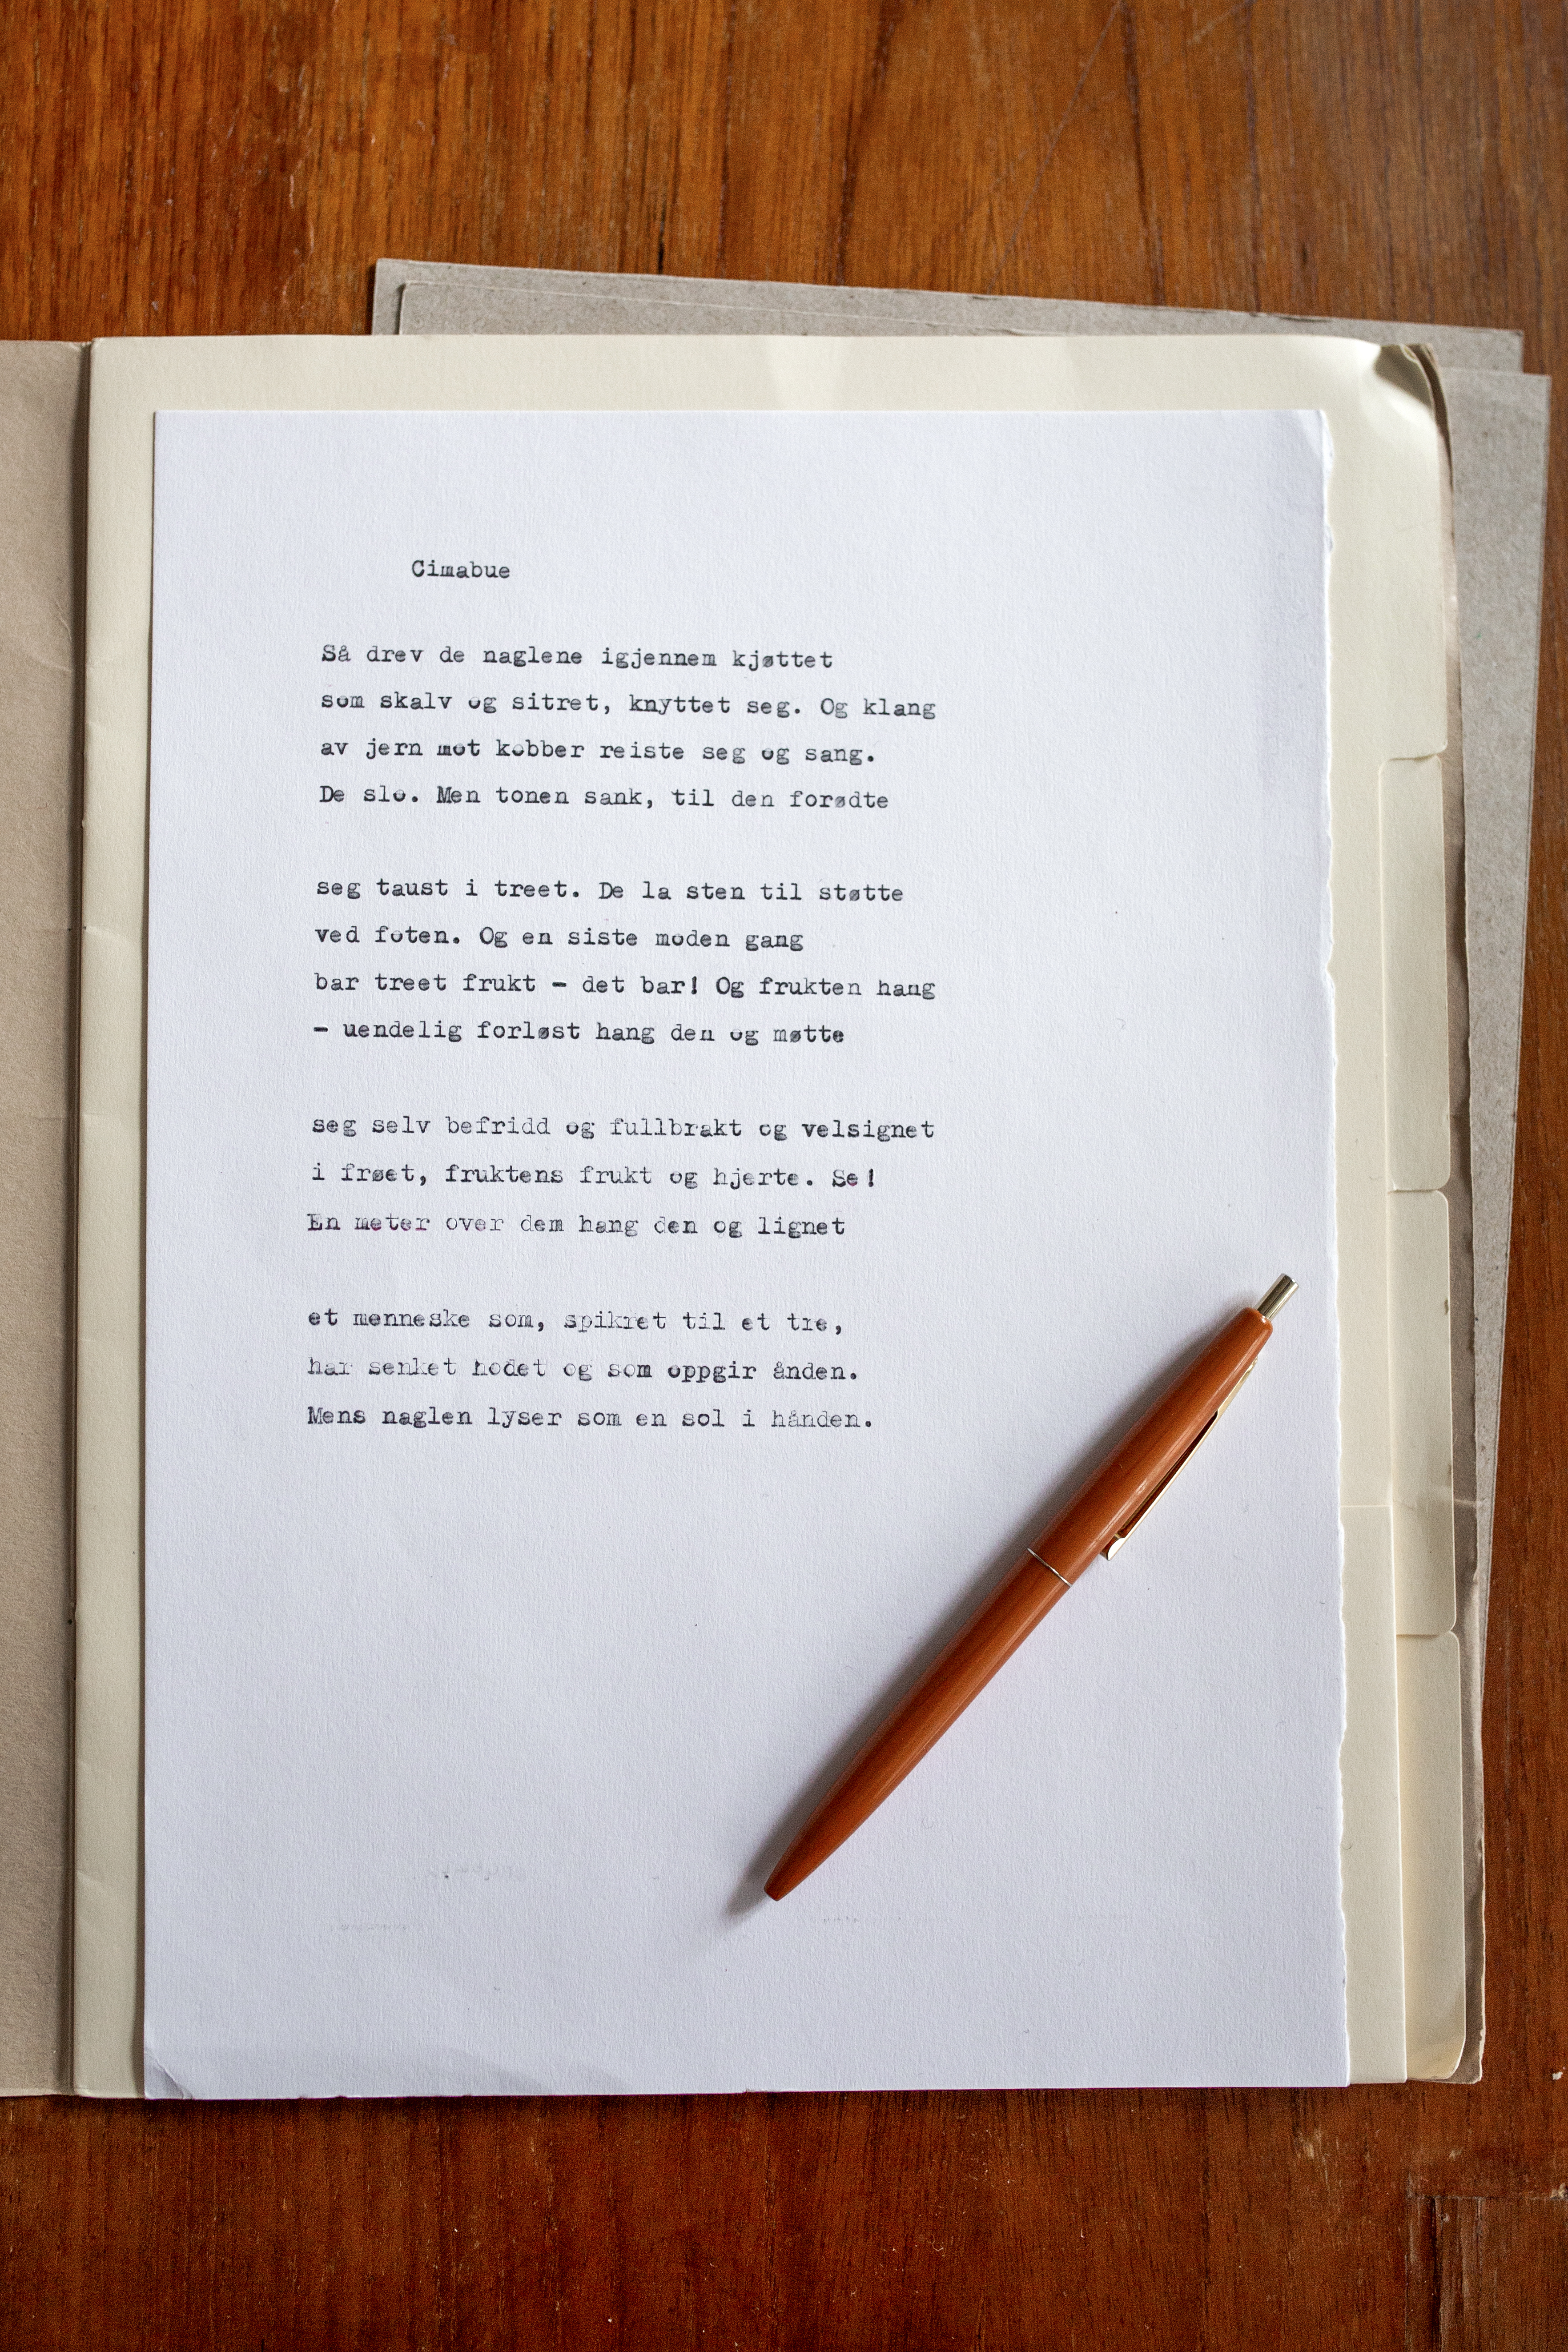 Cimabue
Så drev de naglene igjennem kjøttet
som skalv og sitret, knyttet seg. Og klang
av jern mot kobber reiste seg og sang.
De slo. Men tonen sank, til den forødte
seg taust i treet. De la sten til støtte
ved foten. Og en siste moden gang
bar treet frukt - det bar! Og frukten hang
- uendelig forløst hang den og møtte
seg selv befridd og fullbrakt og velsignet
i frøet, fruktens frukt og hjerte. Se!
En meter over dem hang den og lignet
et menneske som, spikret til et tre,
har senket hodet og som oppgir ånden.
Mens naglen lyser som en sol i hånden.